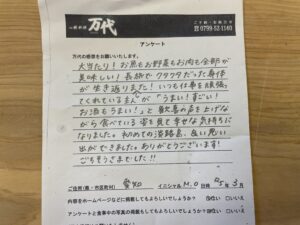 万代
ご予約・お問合せ
☎0799-52-1160
アンケート
万代の感想をお願いいたします。
大当たり!お魚もお野菜もお肉も全部が
美味しい!長旅でクタクタだった身体
が生き返りました!いつも仕事を頑張っ
てくれている主人が「うまい!すごい!
お酒もうまい!」と歓喜の声を上げな
がら食べている姿を見て幸せな気持ちに
なりました。初めての淡路島、良い思い
出ができました。ありがとうございます!
ごちそうさまでした!!
ご住所(県・市区町村) 愛知 イニシャル M.O 日時 5年3月
内容をホームページなどに掲載してもよろしいでしょうか? はい いいえ
アンケートと食事中の写真の掲載もしてもよろしいでしょうか? はい いいえ